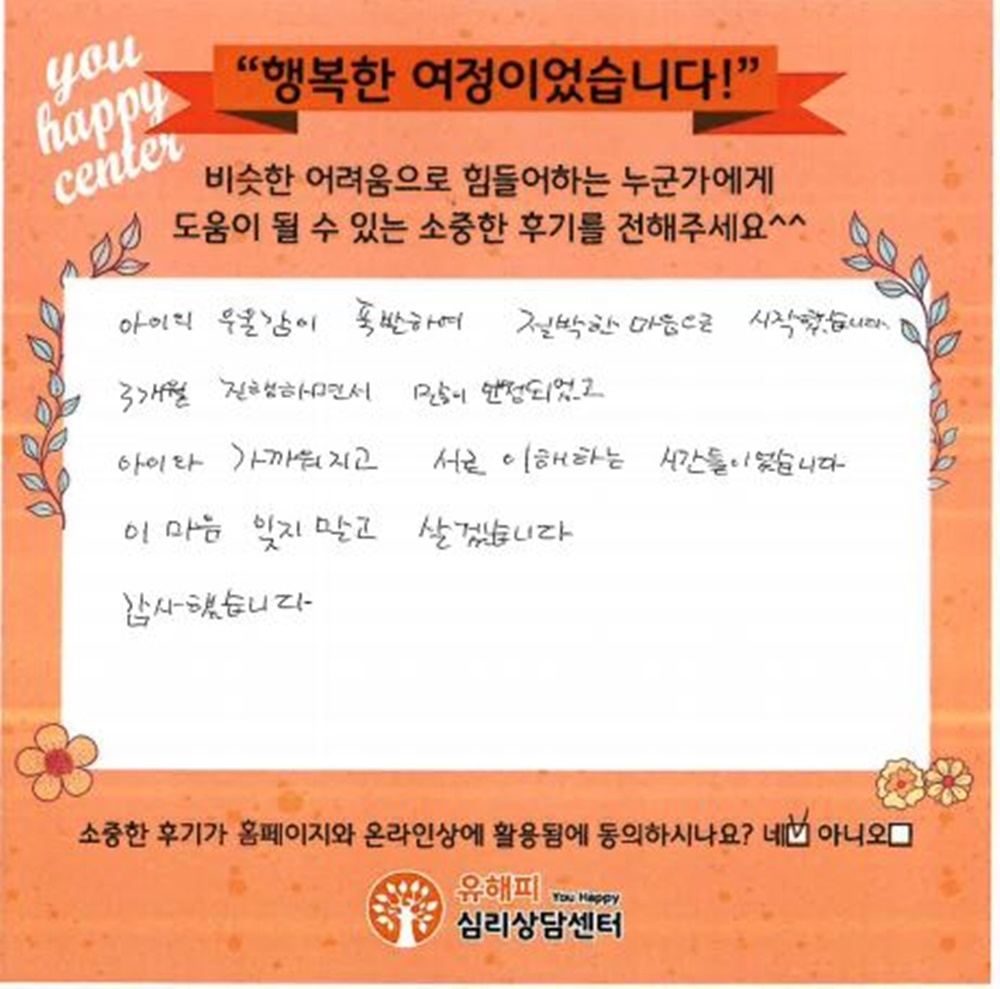 you
happy
center
“행복한 여정이었습니다!”
비슷한 어려움으로 힘들어하는 누군가에게
도움이 될 수 있는 소중한 후기를 전해주세요^^
아이의 우울감이 폭발하여 절박한 마음으로 시작했습니다.
3개월 진행하면서 많이 안정되었고
아이와 가까워지고 서로 이해하는 시간들이었습니다
이 마음 잊지 말고 살겠습니다
감사했습니다
소중한 후기가 홈페이지와 온라인상에 활용됨에 동의하시나요? 네☑ 아니오☐
유해피 You Happy
심리상담센터